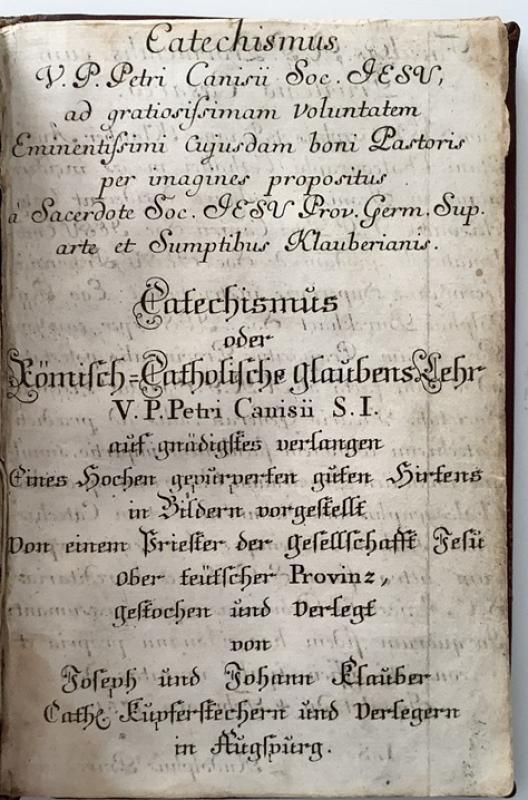 Catechismus
V. P. Petri Canisii Soc. JESU,
ad gratiosissimam voluntatem
Eminentissimi Cujusdam boni Pastoris
per imagines propositus
à Sacerdote Soc. JESU Prov. Germ. Sup.
arte et Sumptibus Klauberianis.
Catechismus
oder
Römisch=Catholische glaubens Lehr
V. P. Petri Canisii S. I.
auf gnädigstes verlangen
Eines Hochen gepurperten guten Hirtens
in Bildern vorgestellt
von einem Priester der gesellschafft Jesu
ober teütscher Provinz,
gestochen und Verlegt
von
Joseph und Johann Klauber
Cath. Kupferstechern und Verlegern
in Augspurg.